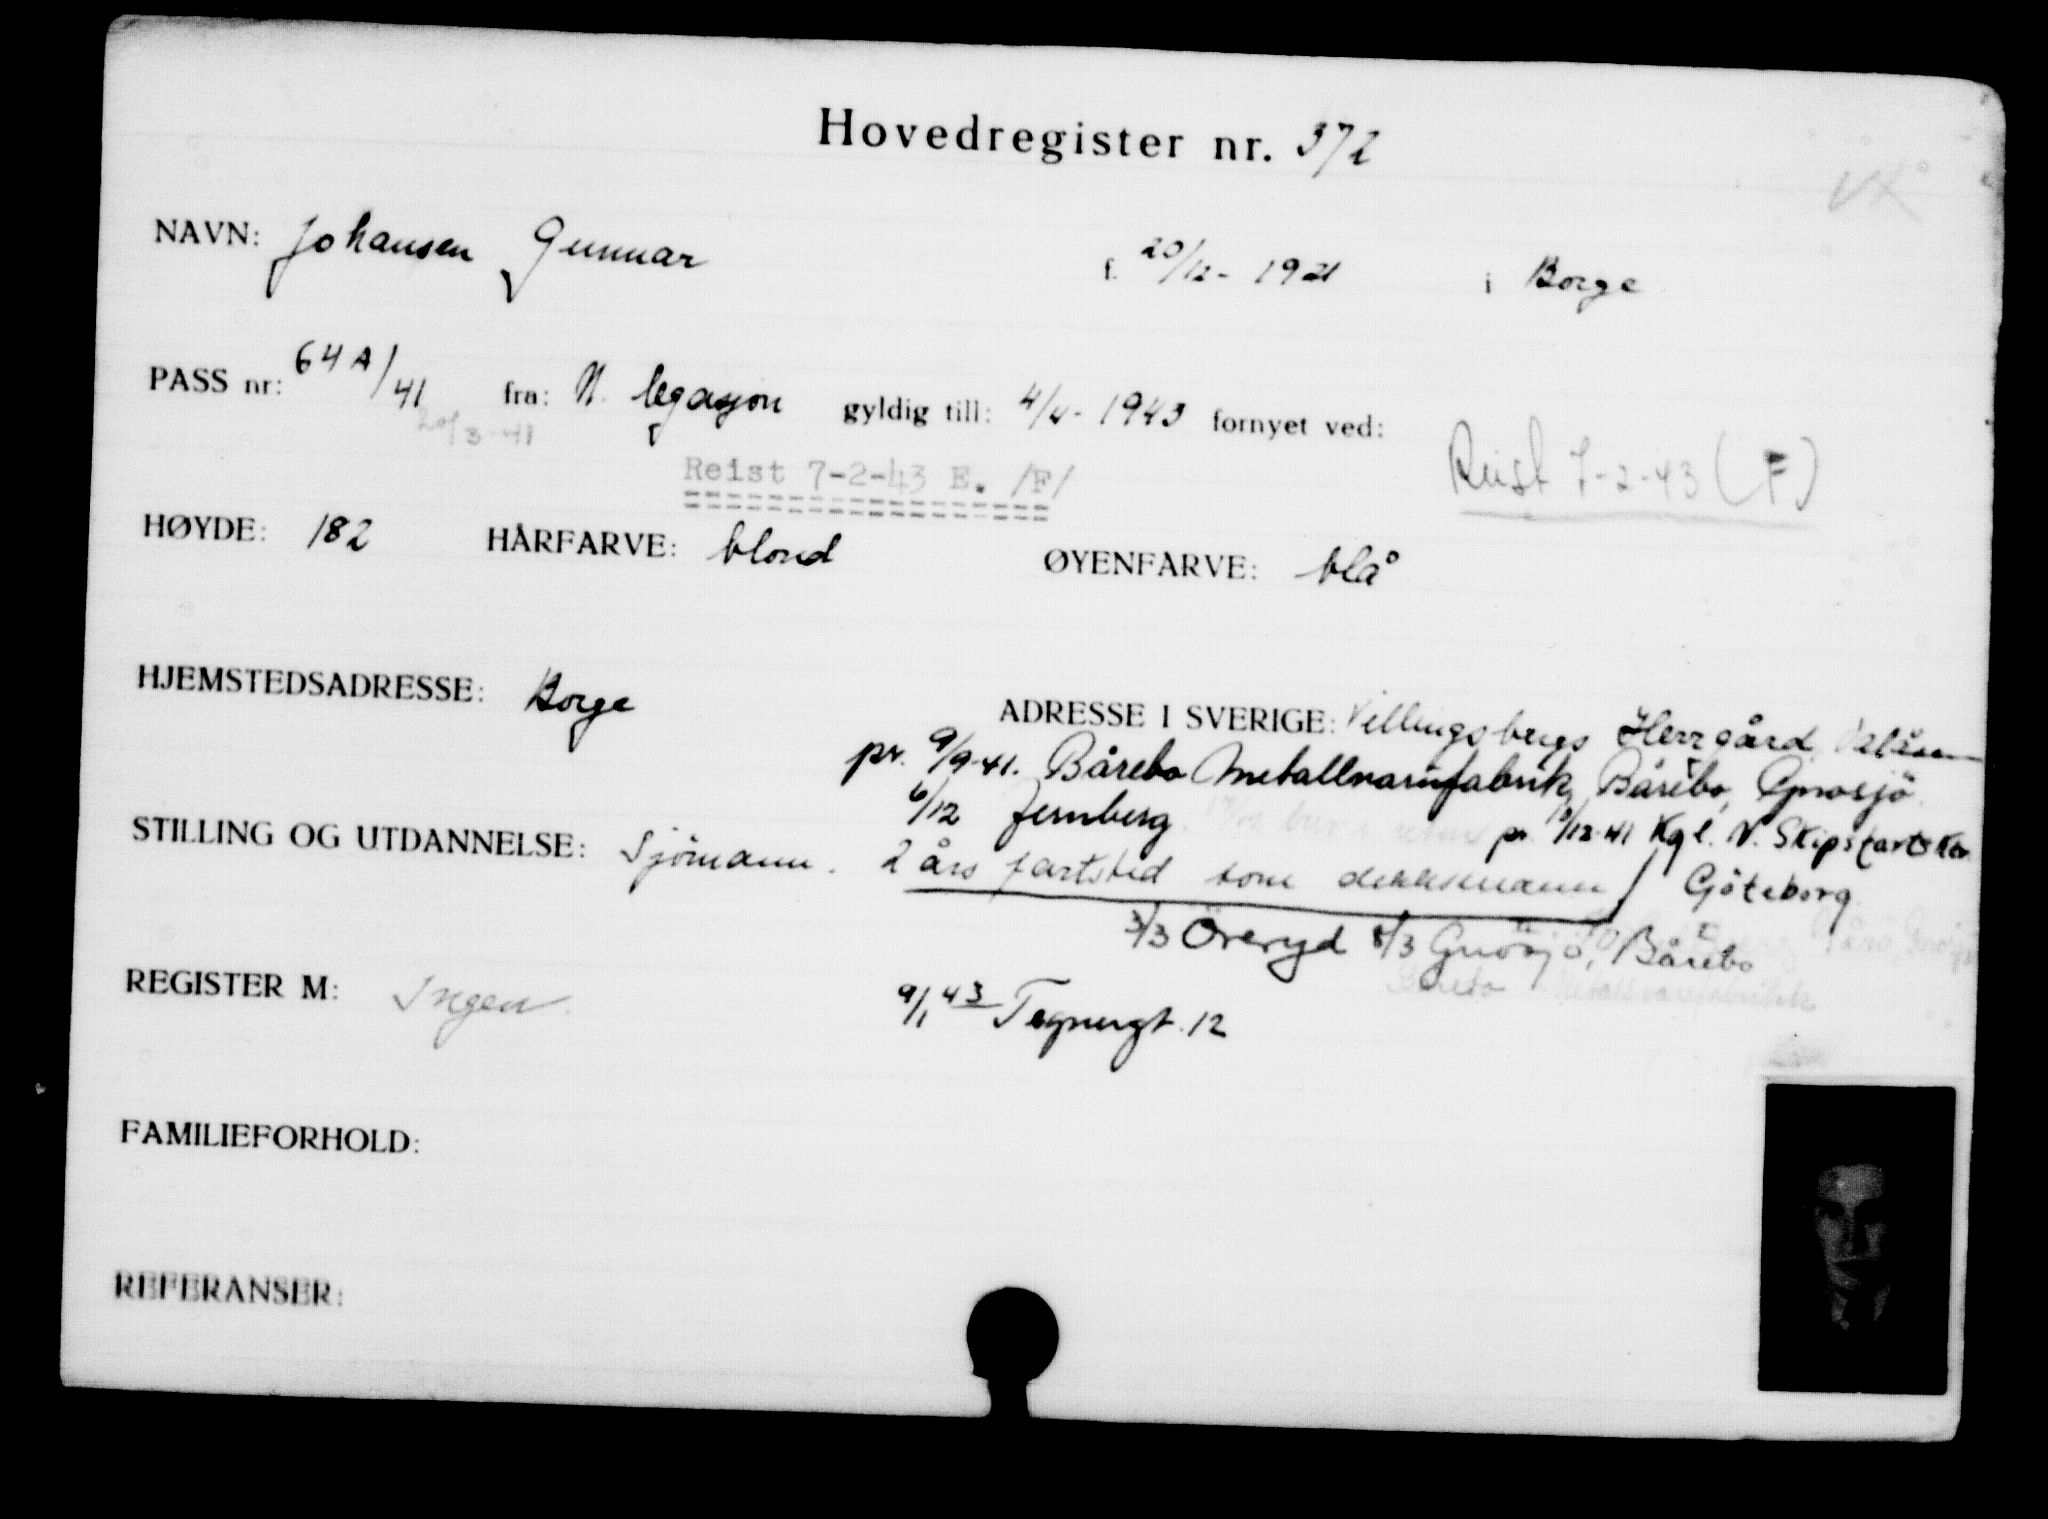 Hovedregister nr. 372
NAVN: Johansen Gunnar f. 20/12- 1921 i Borge
PASS nr: 64A/41 fra: N. legasjon gyldig till: 4/4- 1943 fornyet ved:
20/3-41
Reist 7-2-43 E. /F/
Reist 7-2-43 (F)
HØYDE: 182 HÅRFARVE: blond ØYENFARVE: blå
HJEMSTEDSADRESSE: Borge
ADRESSE I SVERIGE: Villingsbergs Herrgård
pr. 9/9-41. Bårebo Metallvarufabrik, Bårebo, Gnosjö
6/12 Jernberg. pr. 13/12-41 Kgl. N. Skipsfartskon
Göteborg
STILLING OG UTDANNELSE: Sjömann. 2 års fartstid som dekksmann
3/3 Öreryd 8/3 Gnosjö, Bårebo
Bårebo Metallvarufabrik
REGISTER M: Ingen.
9/1 43 Tegnergt. 12
FAMILIEFORHOLD:
REFERANSER: